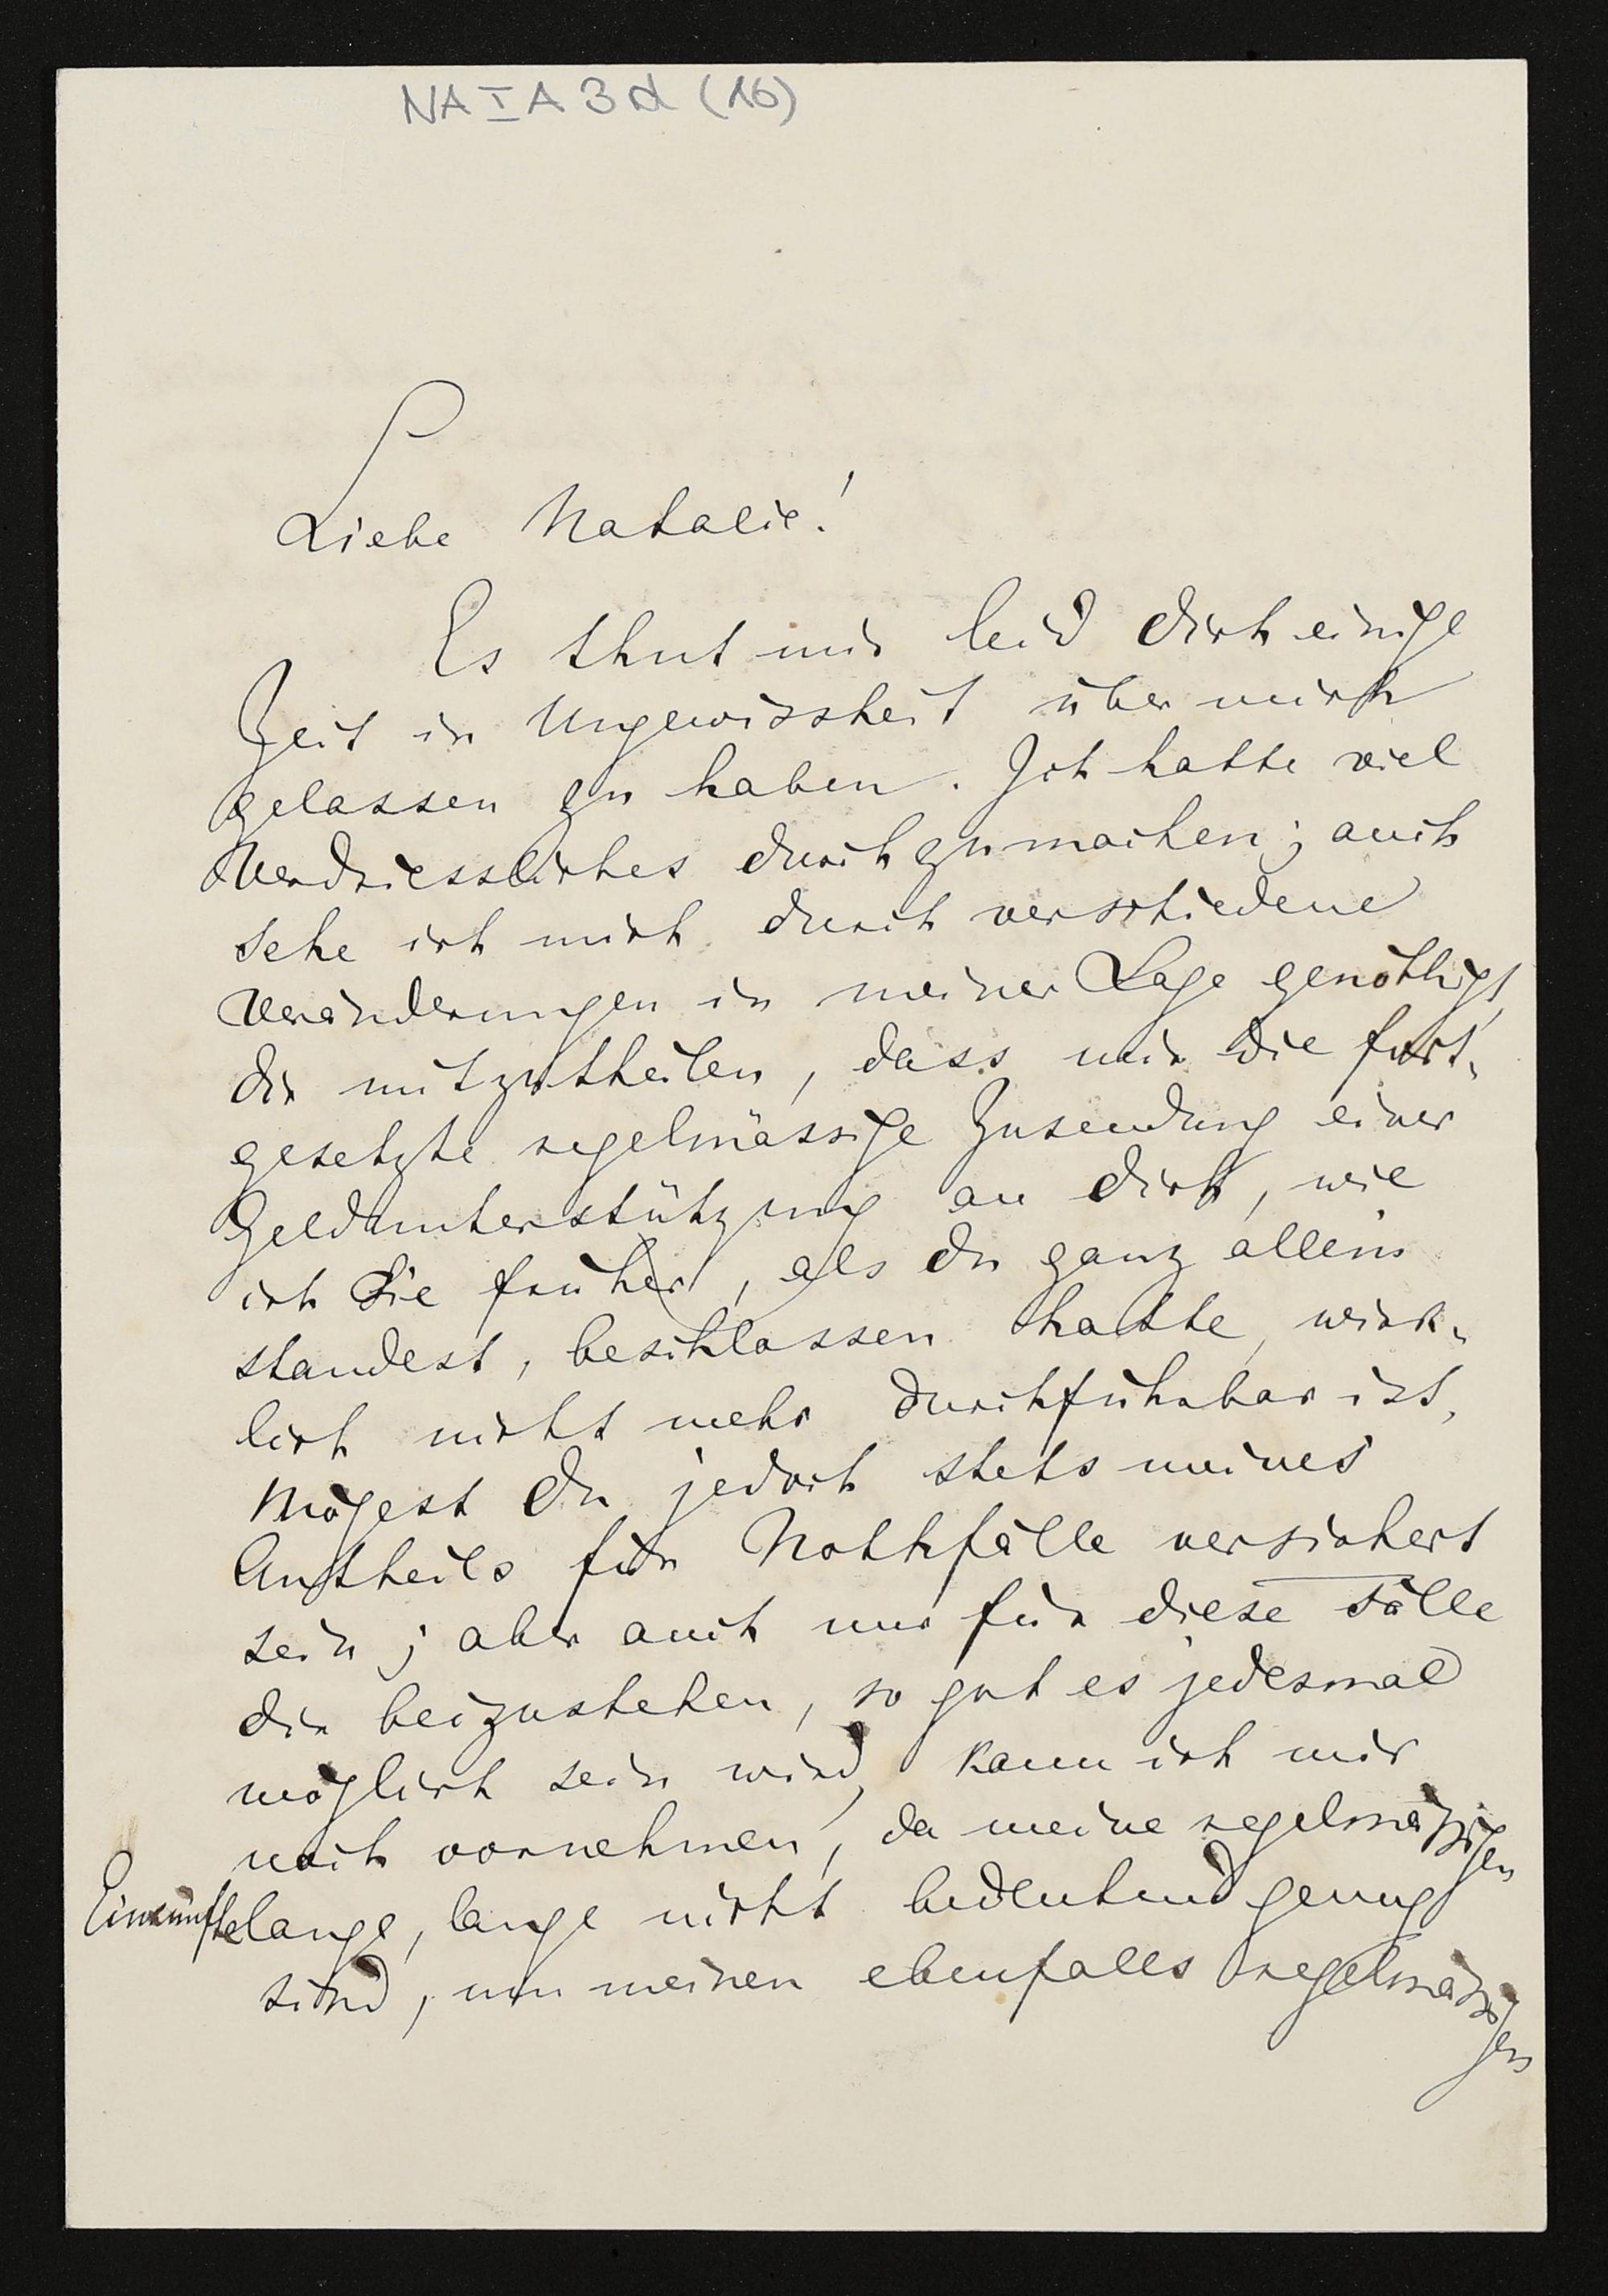 NA I A 3 d (16)
Liebe Natalie!
Es thut mir leid dich einige
Zeit in Ungewissheit über mich
gelassen zu haben. Ich hatte viel
Verdriessliches durchzumachen; auch
sehe ich mich durch verschiedene
Veränderungen in meiner Lage genöthigt,
dir mitzutheilen, dass mir die fort-
gesetzte regelmässige Zusendung einer
Geldunterstützung an dich, wie
ich sie früher, als du ganz allein
standest, beschlossen hatte, wirk-
lich nicht mehr durchführbar ist.
Mögest du jedoch stets meines
Antheils für Nothfälle versichert
sein; aber auch nur für diese Fälle
dir beizustehen, so gut es jedesmal
möglich sein wird, kann ich mir
noch vornehmen, da meine regelmässigen
Einkünfte lange, lange nicht bedeutend genug
sind, um meinen ebenfalls regelmässigen